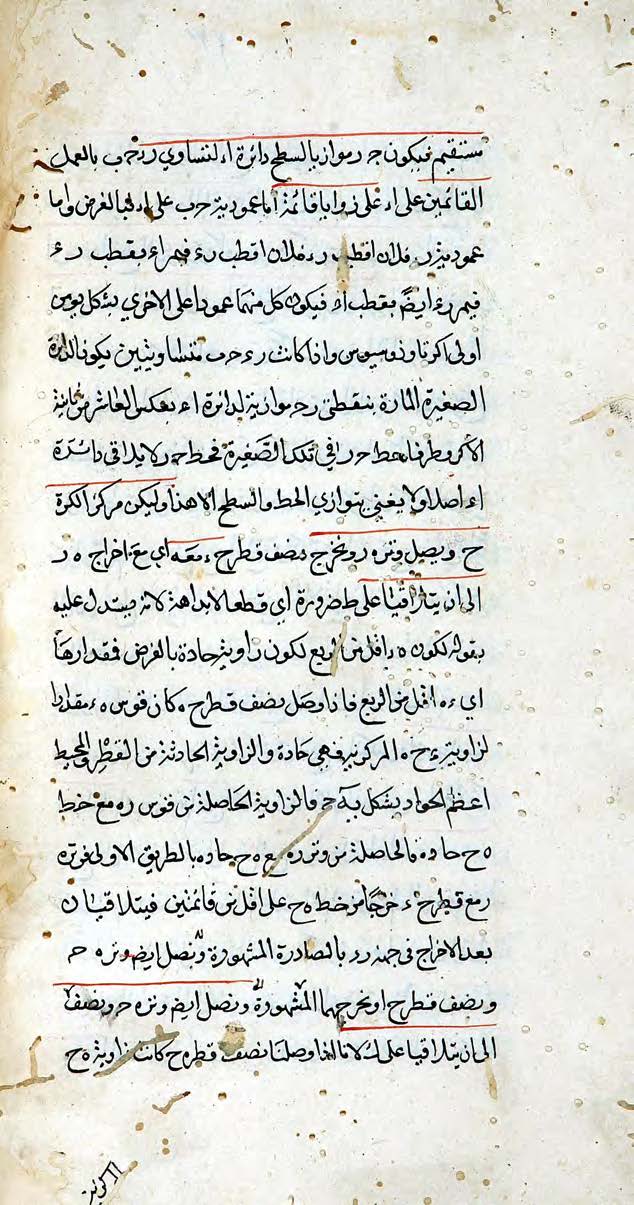 مستقيم فيكون حـ ر موازيا لسطح دائرة اء لتساوي ر حـ ب بالعمل
القائمين على اء على زوايا قائمة أما عمودية حـ ب على اء فبالفرض واما
عمودية ر فلان اقطب رء فلان اقطب رء فيمر اء بقطب رء
فيمر رء ايضً بقطب اء فيكون كل منهما عمودا على الاخرى بشكل يو من
اولى اكر ثاوذوسيوس واذا كانت رء حـ ب متساويتين يكون الدائرة
الصغيرة المارة بنقطتى ر حـ موازية لدائرة اء بعكس العاشر من ثانية
الاكر وطرفا خط حـ ر في تلك الصغيرة فخط حـ ر لا يلاقى دائرة
اء اصلا ولا يعنى بتوازى الخط والسطح الا هذا وليكن مركز الكرة
ح ويصل وتر ه ر ونخرج نصف قطر ح ء معه اي مع اخراج ه ر
الى ان يتلاقيا على ط ضرورة اي قطعا لا بداهة لانه يستدل عليه
بقوله لكون ه ء اقل من الربع لكون زاوية حادة بالفرض فمقدارها
اي ء ه اقل من الربع فاذا وصل نصف قطر ح ه كان قوس ه ء مقدارا
لزاوية ء ح ه المركزية فهي حادة والزاوية الحادثة من القطر والمحيط
اعظم الحواد بشكل يه حـ فالزاوية الحاصلة من قوس ر ه مع خط
ه ح حادة فالحاصلة من وتر ر ه مع ه ح حادة بالطريق الاولى فوتر ه
ر مع قطر ح ء خرجا من خط ه ح على اقل من قائمتين فيتلاقيان
بعد الاخراج في جهة ر ء بالمصادرة المشهورة ونصل ايضً وتر ه حـ
ونصف قطر ح ا ونخرجهما المشهورة ونصل ايضً وتر ه حـ ونصف
الى ان يتلاقيا على ك لانا اذا وصلنا نصف قطر ه ح كانت زاوية ه ح